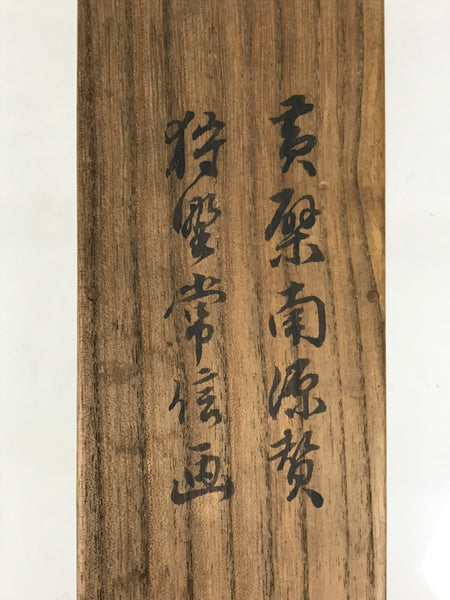 黄檗南源賛
狩野常信画